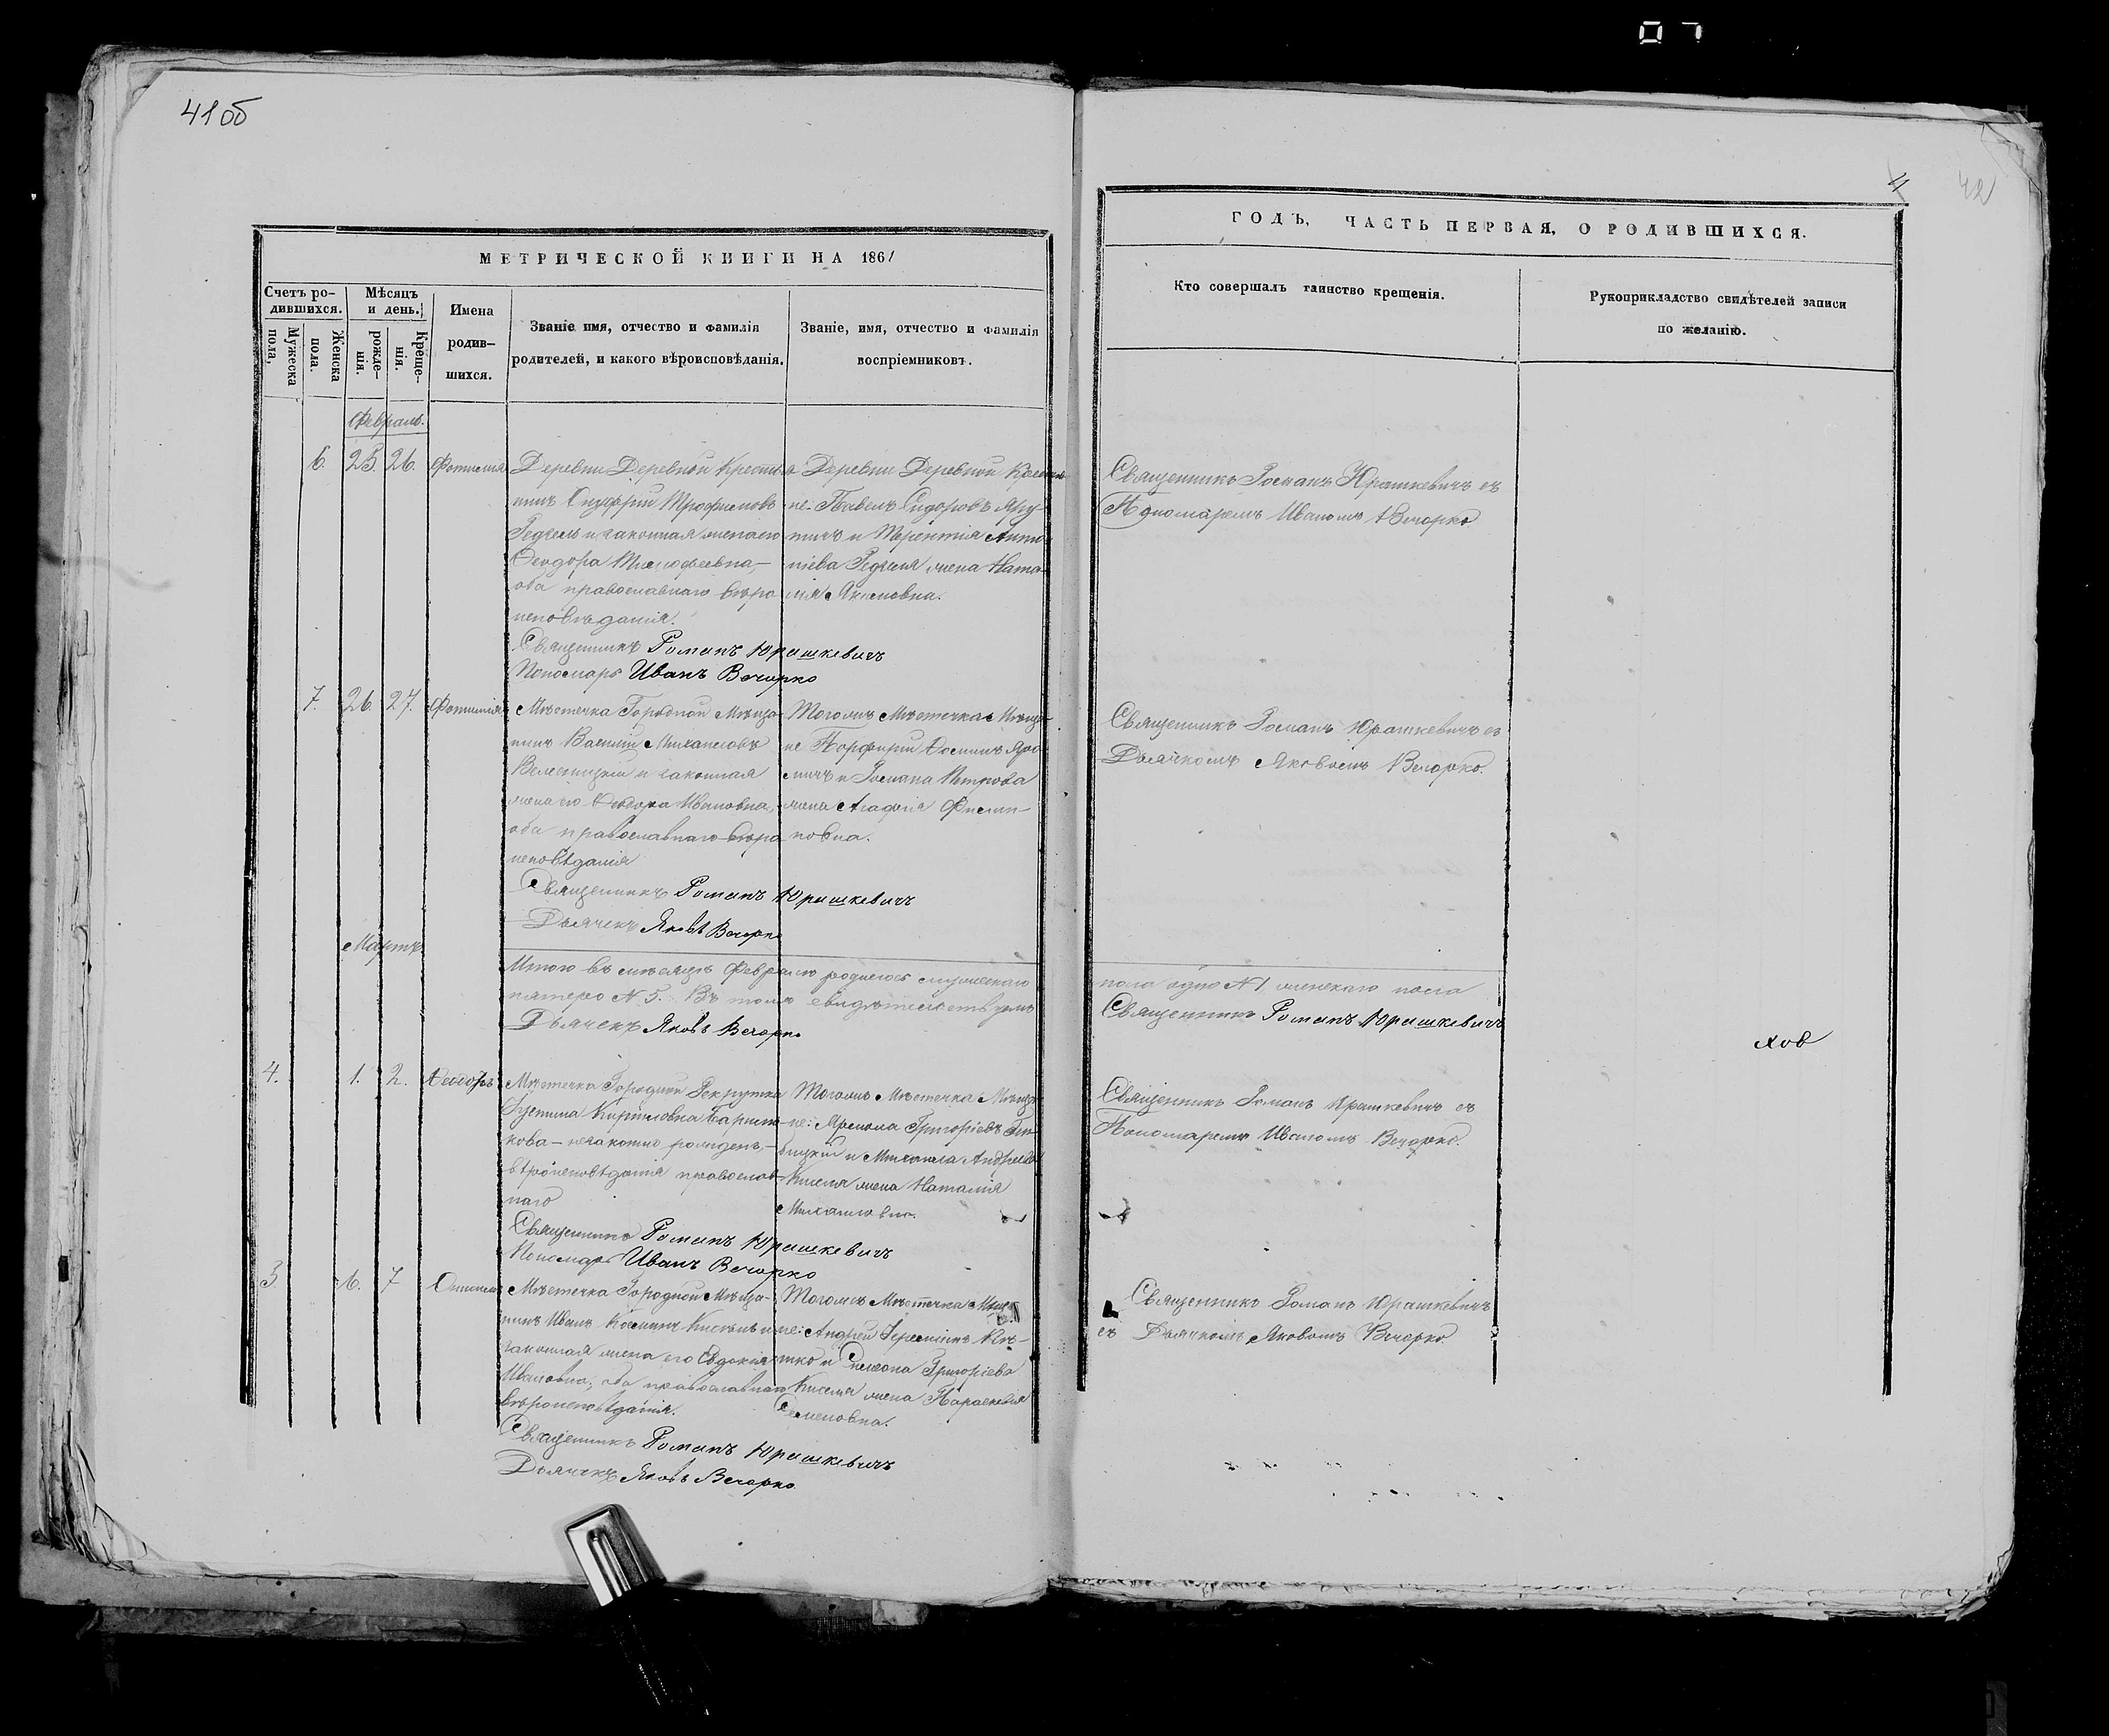 07
41 об
4
42
МЕТРИЧЕСКОЙ КНИГИ НА 1861
ГОДЪ, ЧАСТЬ ПЕРВАЯ, О РОДИВШИХСЯ.
Счетъ ро-
дившихся.
Мужеска
пола,
Женска
пола.
Мѣсяцъ
и день.
рожде-
нія.
Креще-
нія.
Имена
родив-
шихся.
Званіе имя, отчество и фамилія
родителей, и какого вѣроисповѣданія.
Званіе, имя, отчество и фамилія
воспріемниковъ.
Кто совершалъ таинство крещенія.
Рукоприкладство свидѣтелей записи
по желанію.
Февраль.
6. 25. 26.
Деревни Деревной Крестья
нинъ Онуфрій Трофимовъ
и законная жена его
Феодора
оба православнаго вѣро
исповѣданія.
Священникъ Романъ Юрашкевичъ
Пономарь Иванъ Вечорко
Деревни Деревной
не: Павелъ Сидоровъ
жена Ната-
лія
Священникъ Романъ Юрашкевичъ съ
Пономаремъ Иваномъ Вечорко
7. 26. 27.
Мѣстечка Городной Мѣща-
нинъ Василій Михайловъ
Велесницкій и законная
жена его Феодора Ивановна,
оба православнаго вѣро
исповѣданія
Священникъ Романъ Юрашкевичъ
Дьячекъ Яковъ Вечорко
Тогожъ Мѣстечка Мѣща-
не Порфирій
и Романа Петрова
жена Агафія Филип-
повна.
Священникъ Романъ Юрашкевичъ съ
Дьячкомъ Яковомъ Вечорко.
Мартъ
Итого въ мѣсяцѣ Февралѣ родилось мужескаго
пола одно N 1, женскаго пола
пятеро N 5. Въ томъ свидѣтельствуемъ
Священникъ Романъ Юрашкевичъ
Дьячекъ Яковъ Вечорко
ховъ
4. 1. 2. Феодоръ
Мѣстечка Городной Рекрутка
Кириловна
кова – незаконно рожденъ, –
вѣроисповѣданія православ-
наго
Священникъ Романъ Юрашкевичъ
Пономарь Иванъ Вечорко
Тогожъ Мѣстечка Мѣща-
не: Григоріевъ
и Михаила Андреева
Киселя жена Наталія
Михайловна.
Священникъ Романъ Юрашкевичъ съ
Пономаремъ Иваномъ Вечорко.
6. 7
Мѣстечка Городной Мѣща-
нинъ Иванъ Косминъ Кисель и
законная жена его Евдокія
Ивановна, оба православнаго
вѣроисповѣданія.
Священникъ Романъ Юрашкевичъ
Дьячекъ Яковъ Вечорко
Тогожъ Мѣстечка
не: Андрей
и Симеона Григоріева
Киселя жена Параскевія
Семеновна.
Священникъ Романъ Юрашкевичъ
съ Дьячкомъ Яковомъ Вечорко.